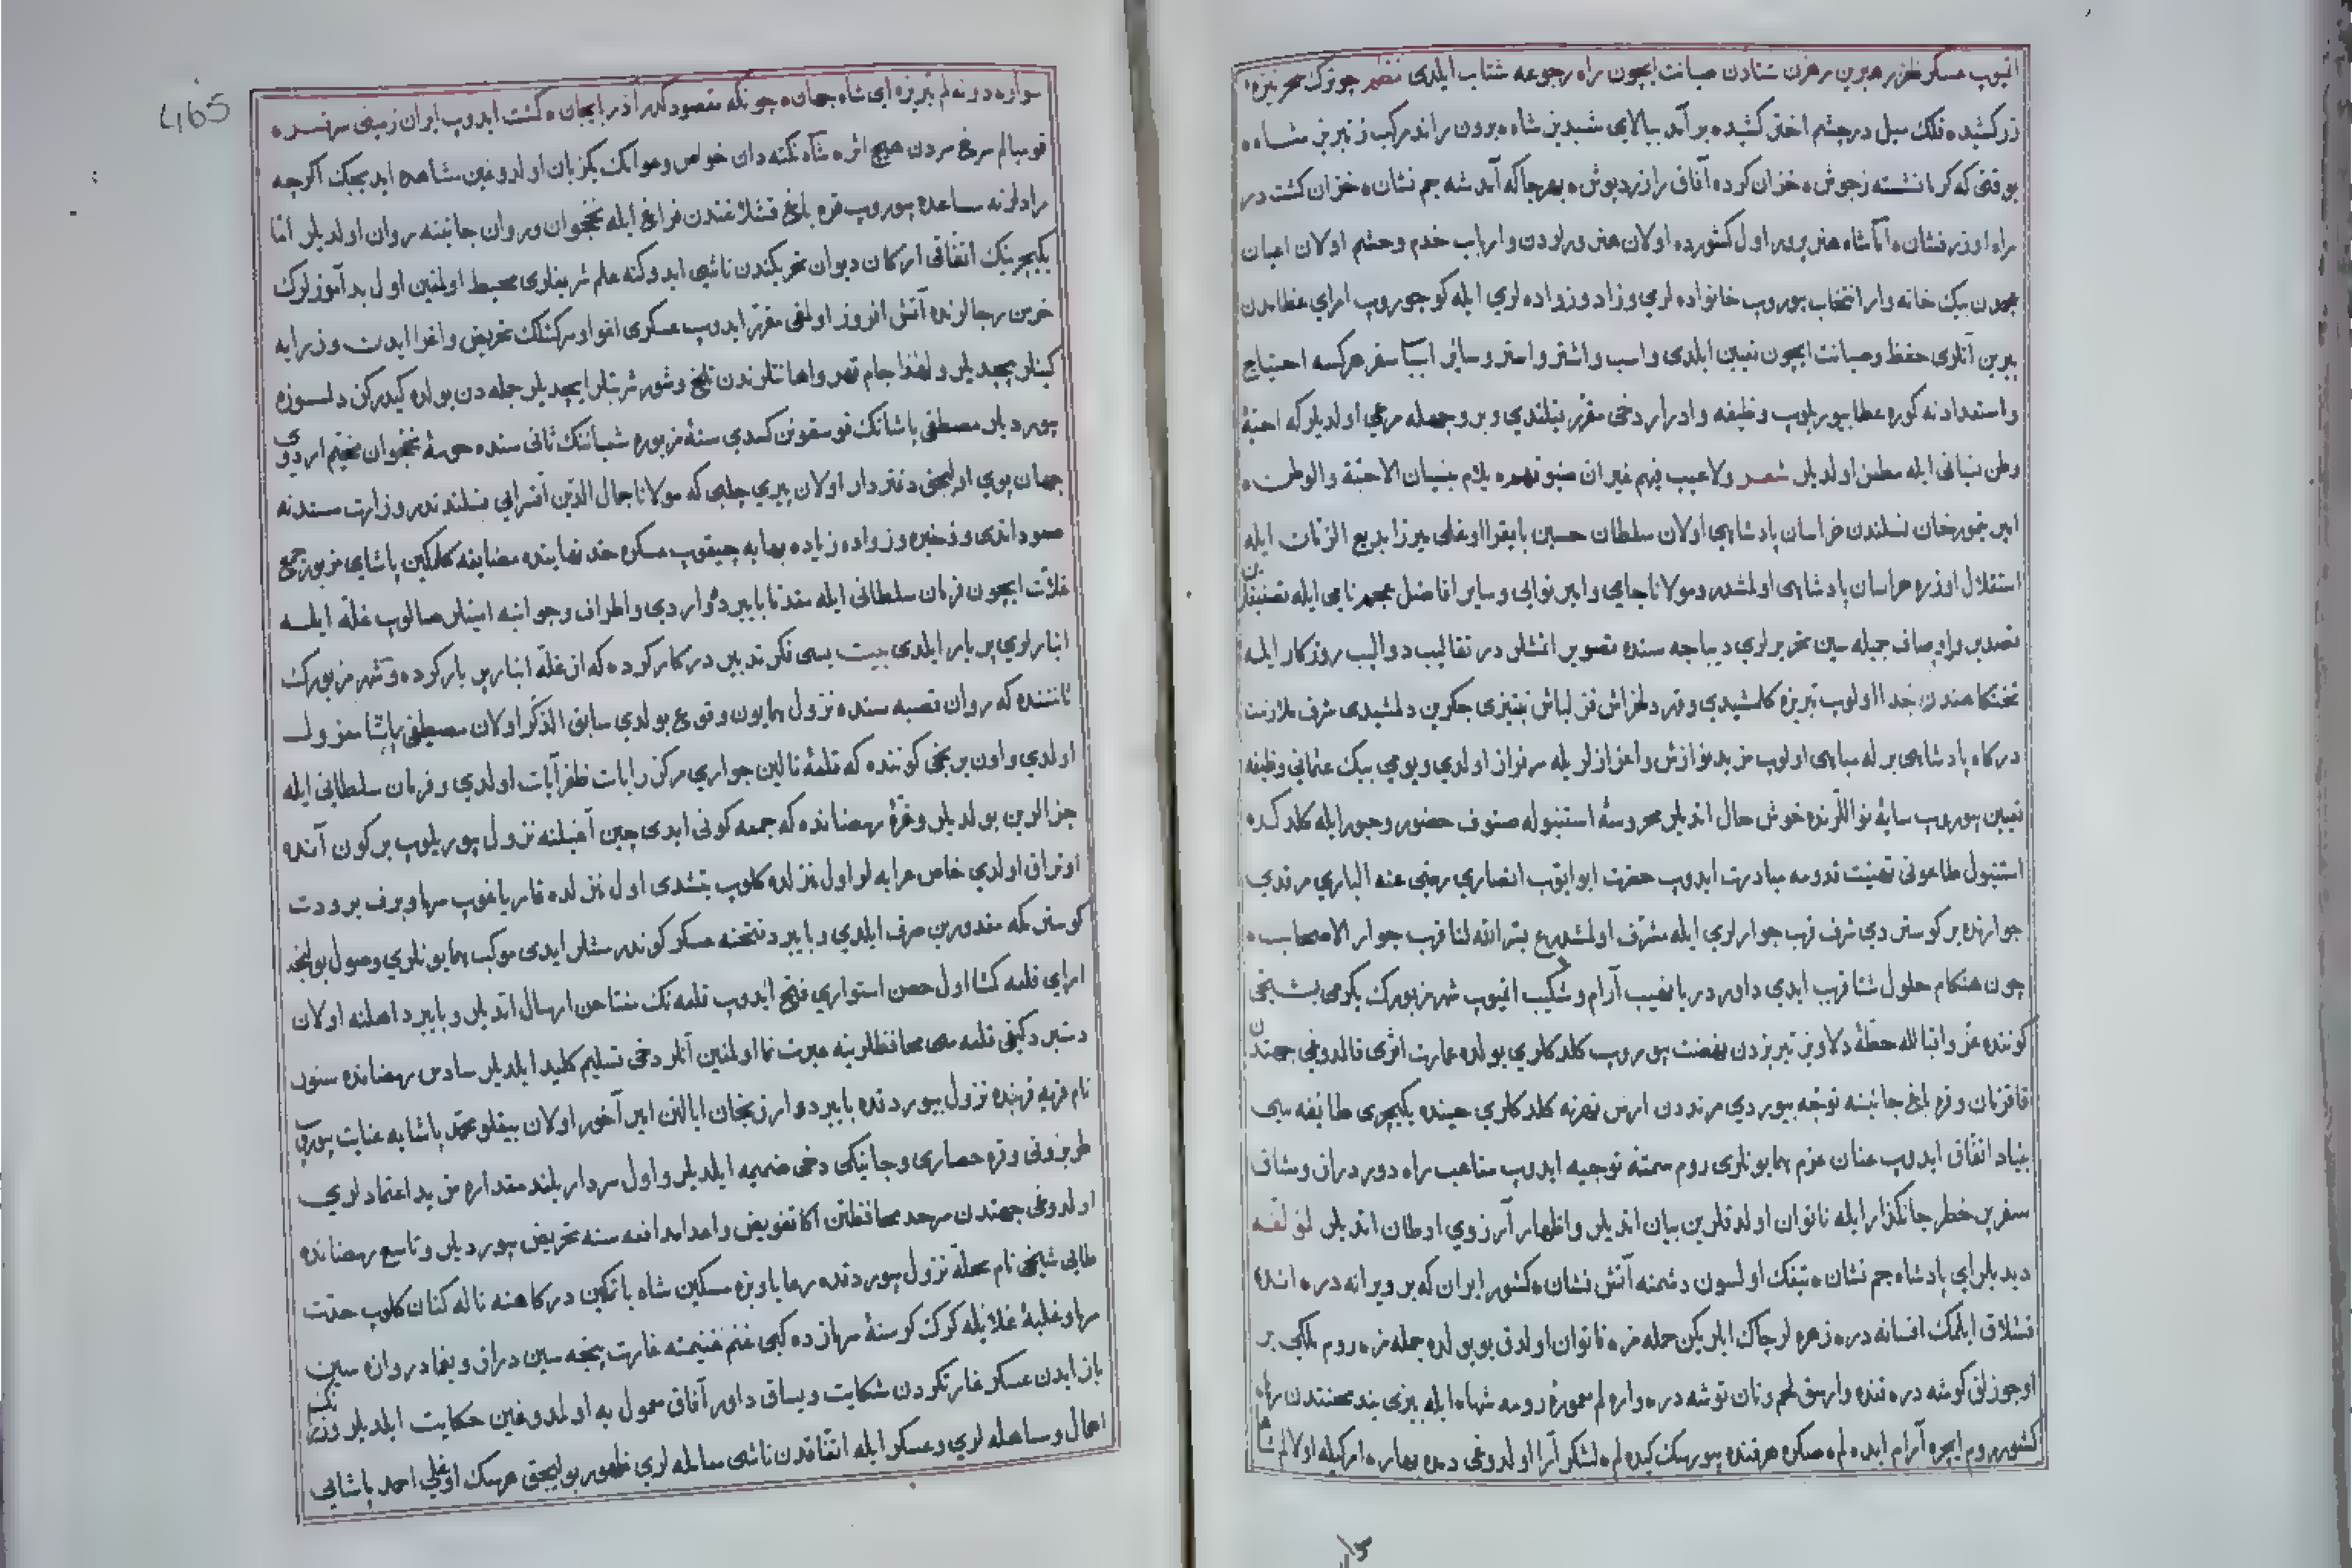 اتیوب عسکر ظفر رهبرین رهزن شتادن صیانت ایچون راه رجوعه شتاب ایلدی نظم چو ترک سحر نیزه
زر کشیده فلک میل در چشم اختر کشیده بر آمد ببالای شبدیز شاه برون راند مرکب ز تبریز شاه
بوقتی که کرما نشسته ز جوش خزان کرده آفاق را زرد پوش بهرجا که آمد شه جم نشان خزان کشت در
راه او زر فشان اما شاه هنر پرور اول کشورده اولان هنر ورلردن وارباب خدم وحشم اولان اعیان
بیک خانه وار انتخاب بیوروب خانواده لری وزاد وزواده لری ایله کوچوروب امرای عظامدن
برین آنلری حفظ وصیانت ایچون تعیین ایلدی واسب واشتر واستر وسائر اسباب سفر هرکسه احتیاج
واستعدادنه کوره عطا بیوریلوب وظیفه وادرار دخی مقرر قیلندی وبر وجهله مرعی اولدیلر که احبهٔ
وطن نسیانی ایله مطعن اولدیلر شعر ولا عیب فیهم غیر ان ضیوفهم یلام بنسیان الاحبة والوطن
امیر تیمور خان نسلندن خراسان پادشاهی اولان سلطان حسین بایقرا اوغلی میرزا بدیع الزمان ایله
استقلال اوزره خراسان پادشاهی اولمشدر ومولانا جامی وامیر نوایی وسایر افاضل نامی ایله
تصدیر واوصاف جمیله سین تحریرلری دیباجه سنده تصویر اتمشلر در تقالیب دوالیب روزکار ایله
تختکاهندن جدا اولوب تبریزه کلمشیدی وقهر دلخراش قزلباش تیزی جکرین دلمشیدی شرف ملازمت
درکاه پادشاهی برله مباهی اولوب مزید نوازش واعزازلریله سرفراز اولدی ویومی بیک عثمانی وظیفه
تعیین بیوروب سایهٔ نواللرنده خوش حال اتدیلر محروسهٔ استنبوله صنوف حضور وحبور ایله کلدکده
استنبول طاعونی تهنیت قدومه مبادرت ایدوب حضرت ابو ایوب انصاری رضی عنه الباری مرقدی
جوارنده یر کوستردی شرف قرب جوارلری ایله مشرف اولمشدر ع یسر الله لنا قرب جوار الاصحاب
چون هنکام حلول شتا قریب ایدی داور دریا نصیب آرام وشکیب اتمیوب شهر مزبورک یکرمی بشنجی
کوننده عز واقبالله خطهٔ دلاویز تبریزدن نهضت بیوروب کلدکلری یولده عمارت اثری قالمدوغی جهتدن
قافزمان وقره باغ جانبنه توجه بیوردی مرنددن ارس نهرنه کلدکلری حینده یکیچری طایفه سی
بنیاد اتفاق ایدوب عنان عزم همایونلری روم سمتنه توجیه ایدوب متاعب راه دور دراز ومشاق
سفر پر خطر جانکدازایله ناتوان اولدقلرین بیان اتدیلر واظهار آرزوی اوطان اتدیلر لمؤلفه
دیدیلر ای پادشاه جم نشان تیفک اولسون دشمنه آتش نشان کشور ایران که بر ویرانه در انده
قشلاق ایلمک افسانه در زهره لر چاک ایلر یکن حمله مز ناتوان اولدق بو یولده جمله مز روم ملکی بر
اوجوزلق کوشه در تنده وارمق لحم ونان توشه در وارهلم معمورهٔ رومه شها ایله بیزی بند محنتدن رها
کشور روم ایچره آرام ایده لم صکره هرقنده بیورسک کیده لم لشکر آرا اولدوغی دمده بهار امر کیله اولالم
سواره دونه لم تبریزه ای شاه جهان چونکه مقصود کدر اذربایجان کشت ایدوب ایران زمینی سرتسر
قومیالم سرخ سردن هیچ اثر شاه نکته دان خواص وعوامک یکزبان اولدوغین مشاهده ایدیجک اکرچه
مرادلرنه مساعده بیوروب قره باغ قشلاغندن فراغ ایله نخجوان وروان جانبنه روان اولدیلر اما
یکیچرینک اتفاقی ارکان دیوان تحریکندن ناشی ایدوکنه علم شریفلری محیط اولمغین اول بد آموزلرک
خرمن رجالرنده آتش افروز اولمغی مقرر ایدوب عسکری اغوا وسرکشلک تحریض واغرا ایدن وزرایه
کینلر بیچدیلر ولهذا جام قهر واهانتلرندن تلخ وشور شربتلر ایچدیلر جمله دن یولده کیدرکن دلسوزه
بیوردیلر مصطفی پاشانک قوسقونن کسدی سنهٔ مزبوره شعباننک ثانی سنده حومهٔ نخجوان مخیم اردوی
جهان پوی اولیجق دفتردار اولان پیری چلبی که مولانا جمال الدین اقسرایی نسلندندر وزارت مسندنه
صعود اتدی وذخیره وزواده زیاده بهایه چیقوب عسکره حد نهایتده مضایقه کلمکین پاشای مزبور جمع
غلات ایچون فرمان سلطانی ایله مقدما بایبرده واردی واطراف وجوانبه امینلر صالوب غله ایله
انبارلری پر بار ایلدی بیت بسی فکر تدبیر در کار کرده که از غله انبار پر بار کرده وشهر مزبورک
ثامننده که روان قصبه سنده نزول همایون وقوع بولدی سابق الذکر اولان مصطفی پاشا معزول
اولدی واون برنجی کوننده که قلعهٔ نالین جواری مرکز رایات ظفر آیات اولدی وفرمان سلطانی ایله
جزالرین بولدیلر وغرهٔ رمضانده که جمعه کونی ایدی چین آغیلنه نزول بیوریلوب بر کون آنده
اوتراق اولدی خاص عرابه لر اول منزلده کلوب یتشدی اول منزلده قار یاغوب سرما وبرف برودت
کوسترمکه مقدورین صرف ایلدی وبایبرد فتحنه عسکر کوندرمشلر ایدی موکب همایونلری وصول بولیجق
امرای قلعه کشا اول حصن استواری فتح ایدوب قلعه نک مفتاحن ارسال اتدیلر وبایبرد اهلنه اولان
دستبرد کیفی قلعه سی محافظلرینه عبرت نما اولمغین آنلر دخی تسلیم کلید ایلدیلر سادس رمضانده سنور
نام قریه قربنده نزول بیوردقده بایبرد وارزنجان ایالتن امیر آخور اولان بیقلو محمد پاشایه عنایت بیوروب
طربزونی وقره حصاری وجانیکی دخی ضمیمه ایلدیلر واول سردار بلند مقداره مزید اعتمادلری
اولدوغی جهتدن سرحد محافظتن اکا تفویض واعدا مدافعه سنه تحریض بیوردیلر وتاسع رمضانده
طابی شیخی نام محله نزول بیوردقده رعایا ویزه مسکین شاه باتمکین درکاهنه ناله کنان کلوب حدت
سرما وغلبهٔ غلا ایله کورک کوسنهٔ سرمازده کبی غنم غنیمته غارت پنجه سین دراز ویغما دروازه سین
باز ایدن عسکر غارتکردن شکایت ویساق داور آفاق معمول به اولمدوغین حکایت ایلدیلر
اهمال ومساهله لری وعسکر ایله اتفاقدن ناشی معامله لری ظهور بولیجق هرسک اوغلی احمد پاشایی
465